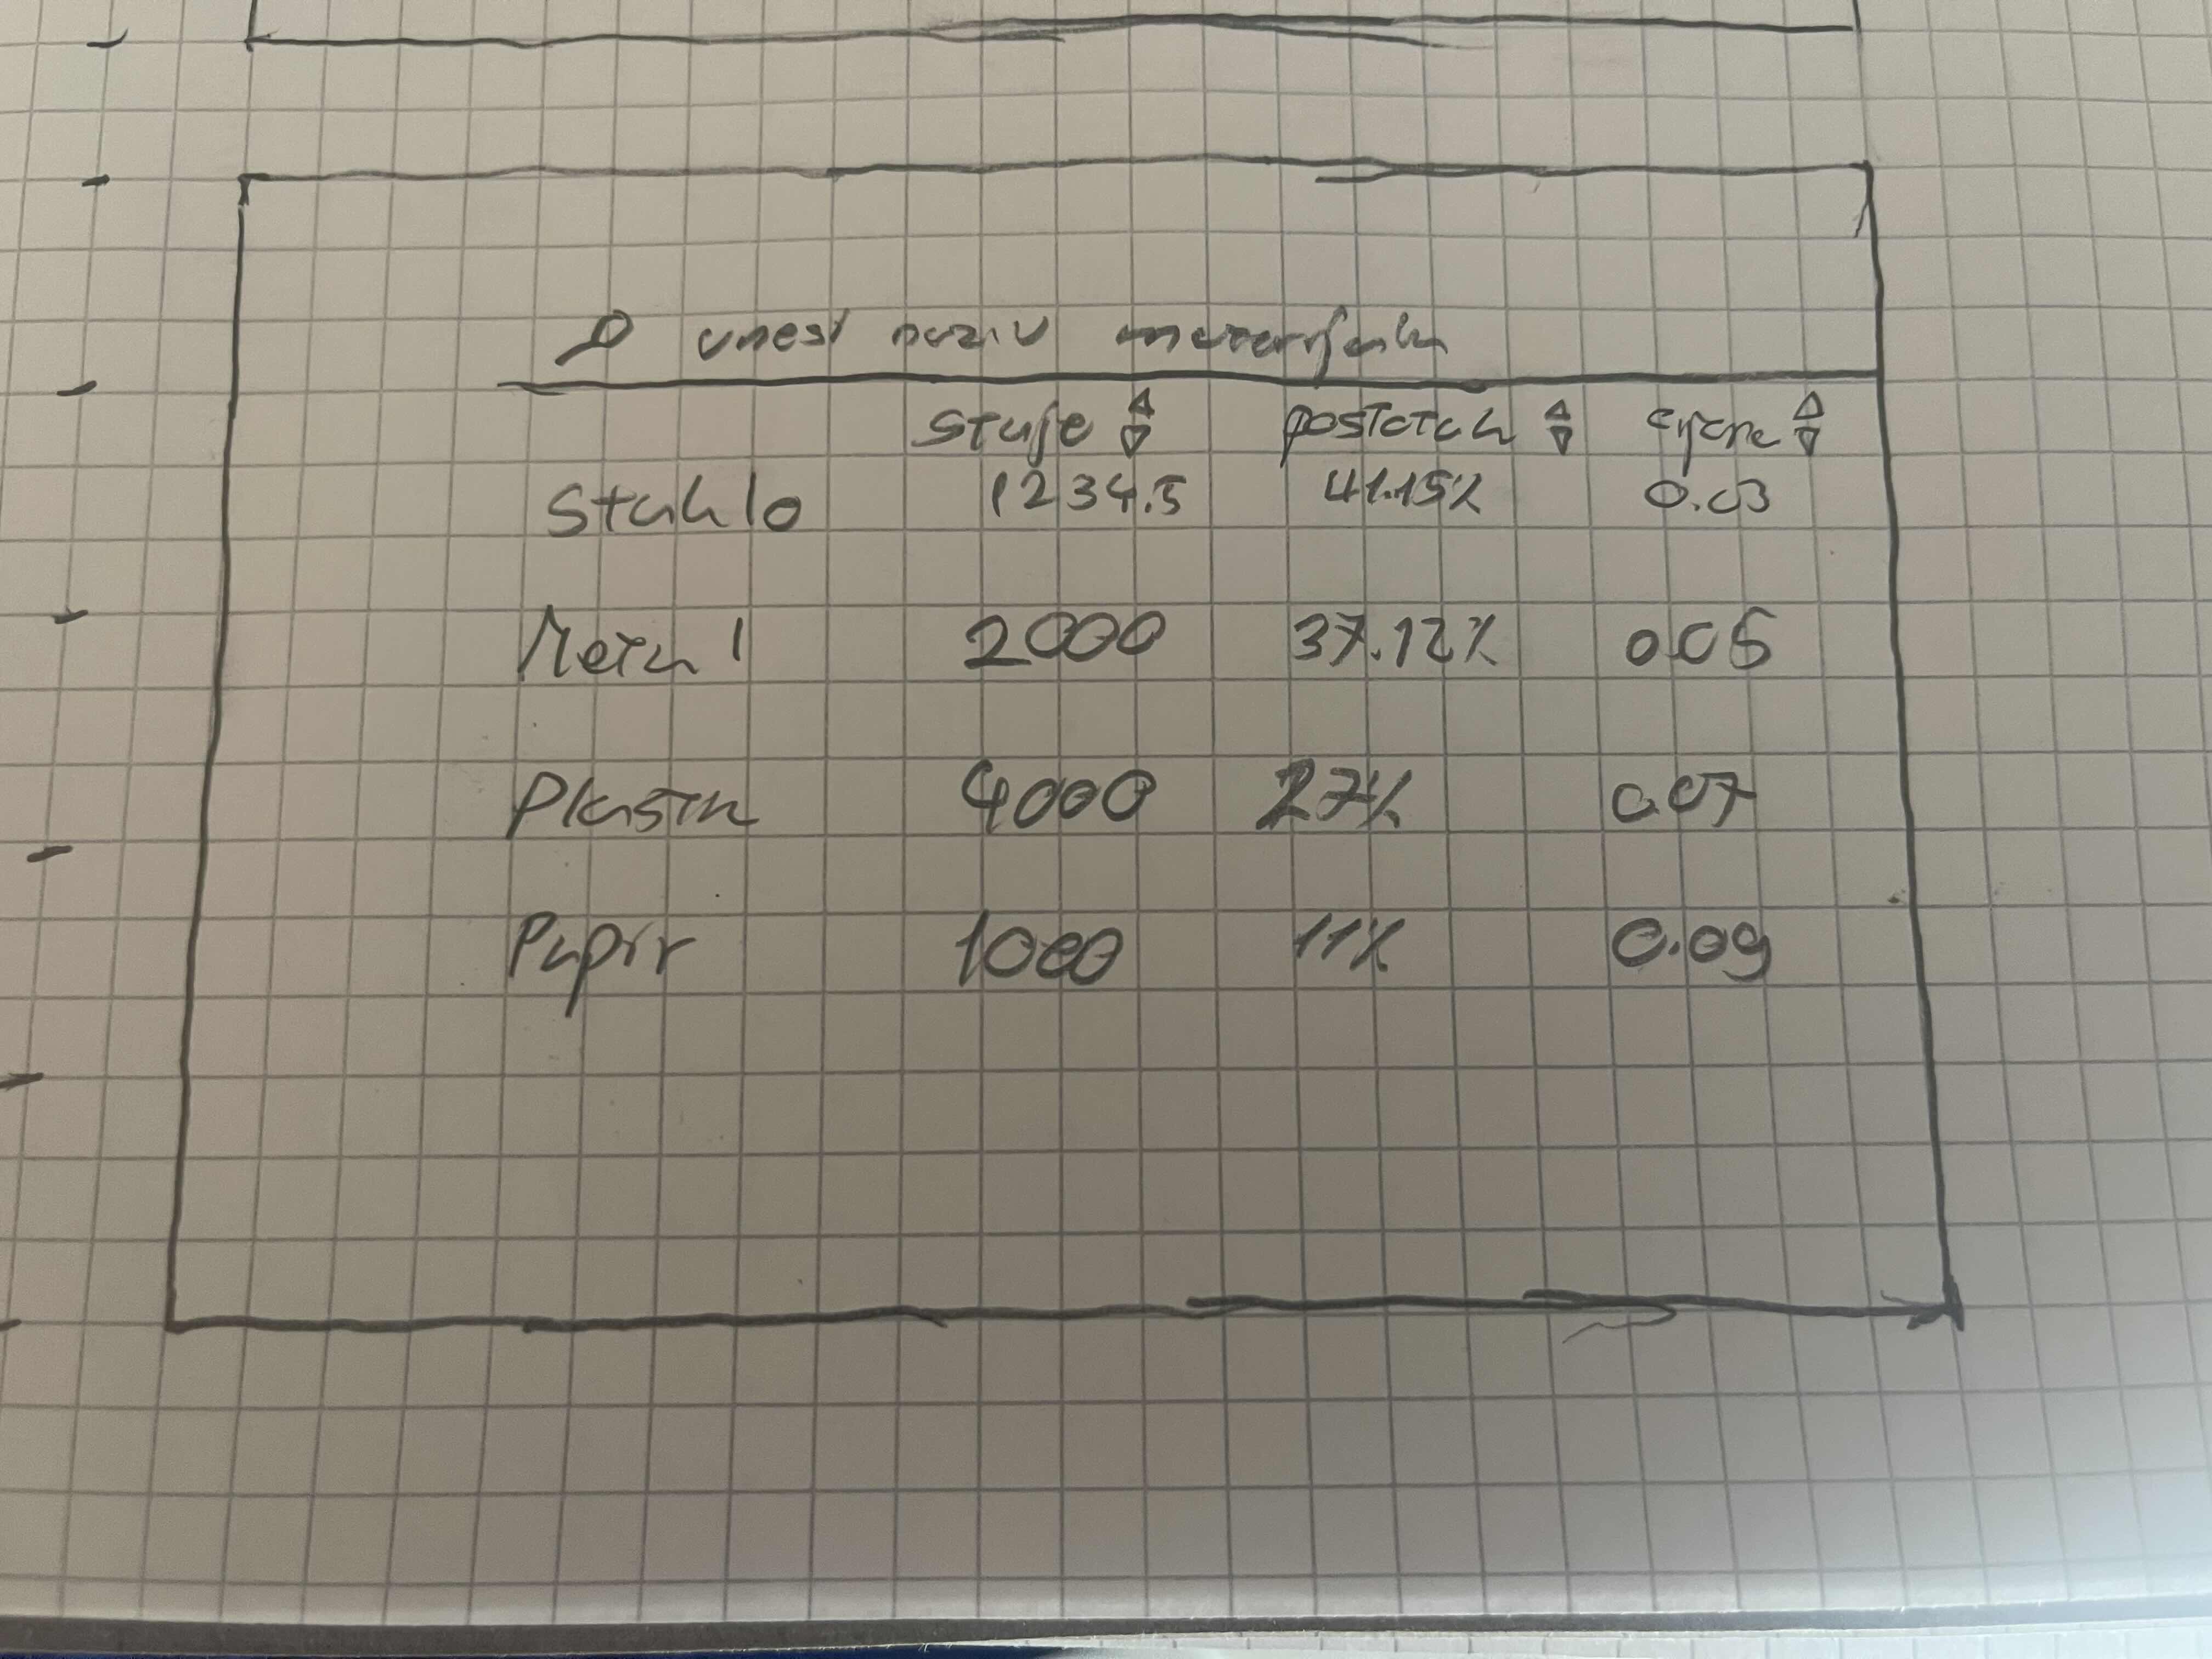 unesi naziv materijala
Stanje postotak cijena
Staklo 1234.5 41.15%  0.03
Metal 2000 37.12% 0.05
Plastika 4000 27% 0.07
Papir 1000 11% 0.09